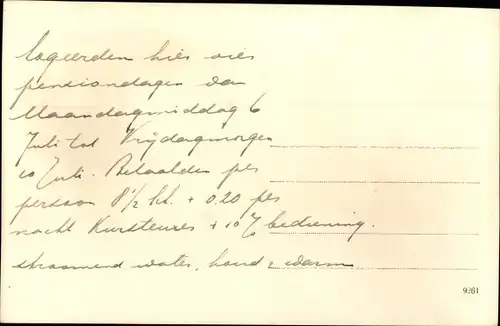 Logeerden hier vier
pensiondagen van
Maandagmiddag 6
Juli tot Vrijdagmorgen
10 Juli. Betaalden per
persoon 8½ + 0.20 per
nacht Kurs + 10% bediening.
stroomend water, koud & warm
9261